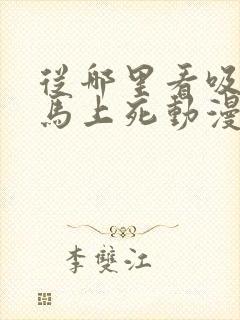 從哪里看吸
馬上死動漫
李雙江